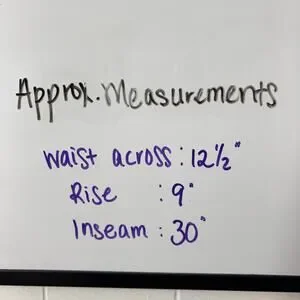 Approx. Measurements
waist across: 12½"
Rise : 9"
Inseam : 30"